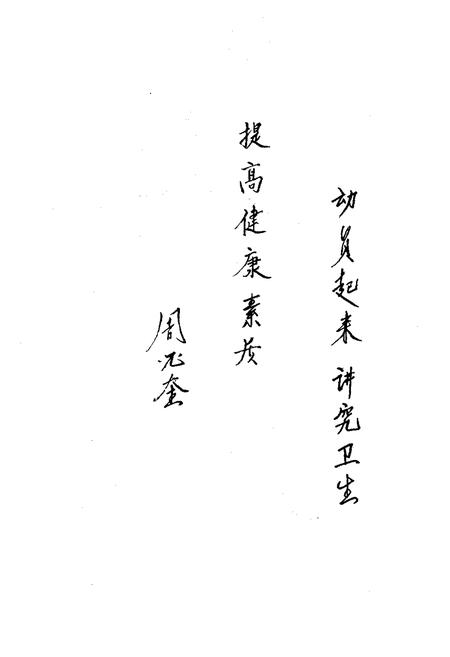 动员起来 讲究卫生
提高健康素质
周光奎